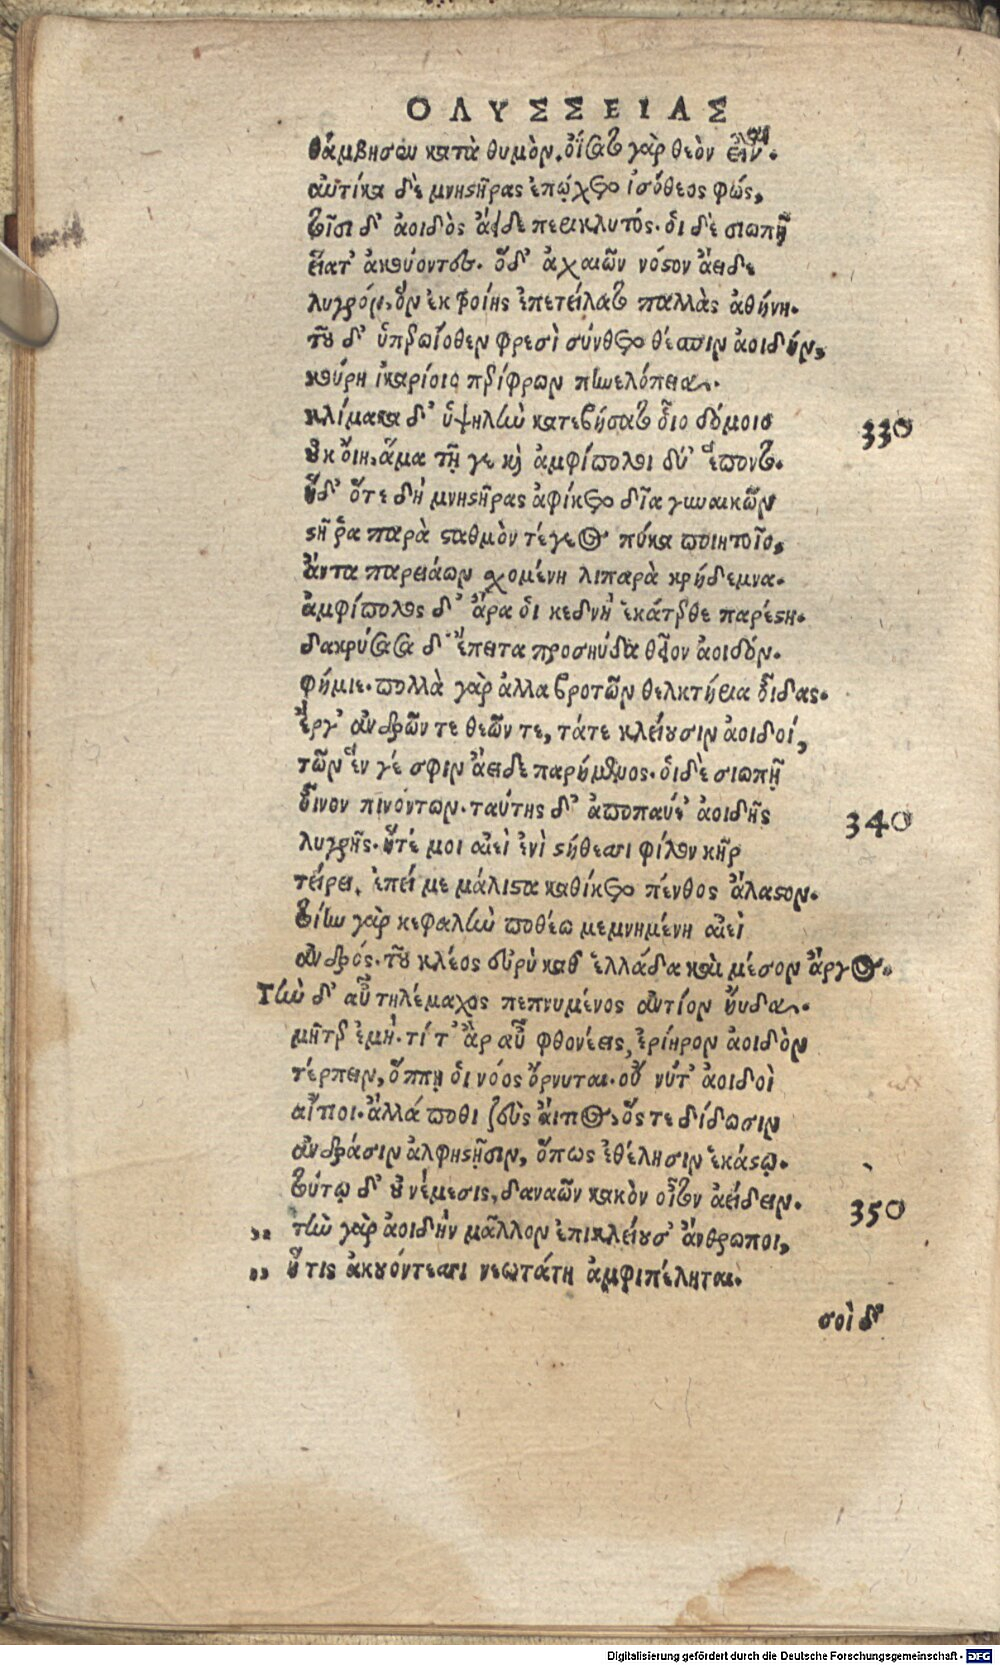 ΟΔΥΣΣΕΙΑΣ
θάμβησεν κατὰ θυμὸν. ὀΐσατο γὰρ θεὸν εἶναι.
αὐτίκα δὲ μνηστῆρας ἐπῴχετο ἰσόθεος φώς,
τοῖσι δ' ἀοιδὸς ἄειδε περικλυτός. ὁι δὲ σιωπῇ
εἵατ' ἀκούοντες. ὅδ' ἀχαιῶν νόστον ἄειδε
λυγρόν, ὃν ἐκ τροίης ἐπετείλατο παλλὰς ἀθήνη.
τοῦ δ' ὑπερωϊόθεν φρεσὶ σύνθετο θέσπιν ἀοιδήν,
κούρη ἰκαρίοιο περίφρων πηνελόπεια.
κλίμακα δ' ὑψηλὴν κατεβήσατο οἷο δόμοιο
330
οὐκ ὄιη, ἅμα τῇ γε καὶ ἀμφίπολοι δύ' ἕποντο.
ἡδ' ὅτε δὴ μνηστῆρας ἀφίκετο δῖα γυναικῶν
στῆ ῥα παρὰ σταθμὸν τέγεος πύκα ποιητοῖο,
ἄντα παρειάων σχομένη λιπαρὰ κρήδεμνα.
ἀμφίπολος δ' ἄρα ὁι κεδνὴ ἑκάτερθε παρέστη.
δακρύσασα δ' ἔπειτα προσηύδα θεῖον ἀοιδόν.
φήμιε. πολλὰ γὰρ ἀλλα βροτῶν θελκτήρια οἶδας.
ἔργ' ἀνδρῶν τε θεῶν τε, τάτε κλείουσιν ἀοιδοί,
τῶν ἕν γέ σφιν ἄειδε παρήμενος. ὁιδὲ σιωπῇ
οἶνον πινόντων. ταύτης δ' ἀποπαύε' ἀοιδῆς
340
λυγρῆς. ἥτέ μοι αἰεὶ ἐνὶ στήθεσσι φίλον κῆρ
τείρει, ἐπεί με μάλιστα καθίκετο πένθος ἄλαστον.
τοίην γὰρ κεφαλὴν ποθέω μεμνημένη αἰεὶ
ἀνδρός. τοῦ κλέος εὐρὺ καθ' ἑλλάδα καὶ μέσον ἄργος.
Τὴν δ' αὖ τηλέμαχος πεπνυμένος ἀντίον ηὔδα.
μῆτερ ἐμὴ. τί τ' ἂρ αὖ φθονέεις, ἐρίηρον ἀοιδὸν
τέρπειν, ὅππῃ ὁι νόος ὄρνυται. οὔ νύτ' ἀοιδοὶ
αἴτιοι. ἀλλά ποθι ζεὺς ἄιτιος, ὅς τε δίδωσιν
ἀνδράσιν ἀλφηστῇσιν, ὅπως ἐθέλησιν ἑκάστῳ.
τούτῳ δ' οὐ νέμεσις, δαναῶν κακὸν οἶτον ἀείδειν.
350
,, τὴν γὰρ ἀοιδὴν μᾶλλον ἐπικλείουσ' ἄνθρωποι,
,, ἥτις ἀκουόντεσσι νεωτάτη ἀμφιπέληται.
σοὶ δ'
Digitalisierung gefördert durch die Deutsche Forschungsgemeinschaft - DFG